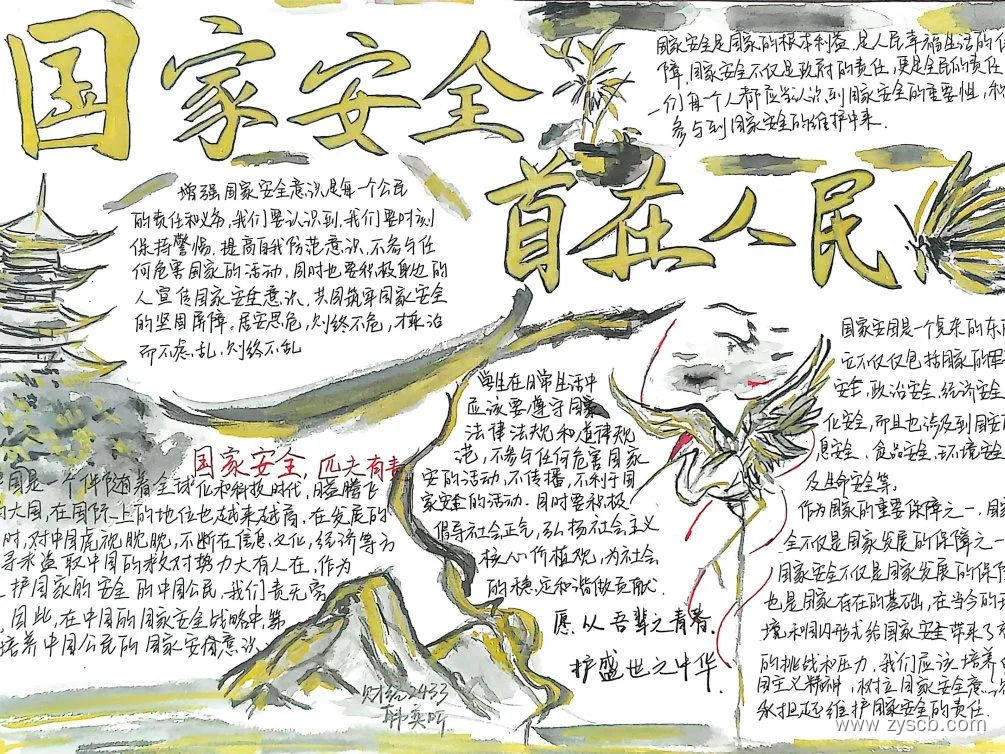 国家安全
首在人民
国家安全是国家的根本利益,是人民幸福生活的保
障,国家安全不仅是政府的责任,更是全民的责任
们每个人都应当认识到国家安全的重要性,积
参与到国家安全的维护中来.
增强国家安全意识是每一个公民
的责任和义务,我们要认识到,我们要时刻
保持警惕,提高自我防范意识,不参与任
何危害国家的活动,同时也要积极
人宣传国家安全意识,共同筑牢国家安全
的坚固屏障。居安思危,则终不危,才取治
而不虑乱,则终不乱
国家安全,匹夫有责
国是一个伴随着全球化和科技时代,腾飞
的大国,在国际上的地位也越来越高,在发展的
时,对中国虎视眈眈,不断在信息,文化,经济等方
寻来盗取中国的敌对势力大有人在,作为
护国家的安全的中国公民,我们责无旁
因此,在中国的国家安全战略中,第
培养中国公民的国家安全意识
学生在日常生活中
应该要遵守国家
法律法规和道律规
范,不参与任何危害国家
安的活动,不传播,不利于国
家安全的活动.同时要积极
倡导社会正气,弘扬社会主义
核心价值观,为社会
的稳定和谐做贡献.
愿以吾辈之青春.
护盛世之中华.
国家安国是一个复来的东
它不仅仅包括国家的军
安全,政治安全,经济安全
化安全,而且也涉及到国安
息安全、食品安全,环境安
及生命安全等.
作为国家的重要保障之一,国家
全不仅是国家发展的保障之一
国家安全不仅是国家发展的保障
也是国家存在的基础,在当今的
境,和国内形式给国家安全带来了
的挑战和压力,我们应该培养
国主义精神,树立国家安全意
承担还维护国家安全的责任.
2433
www.zyscb.com